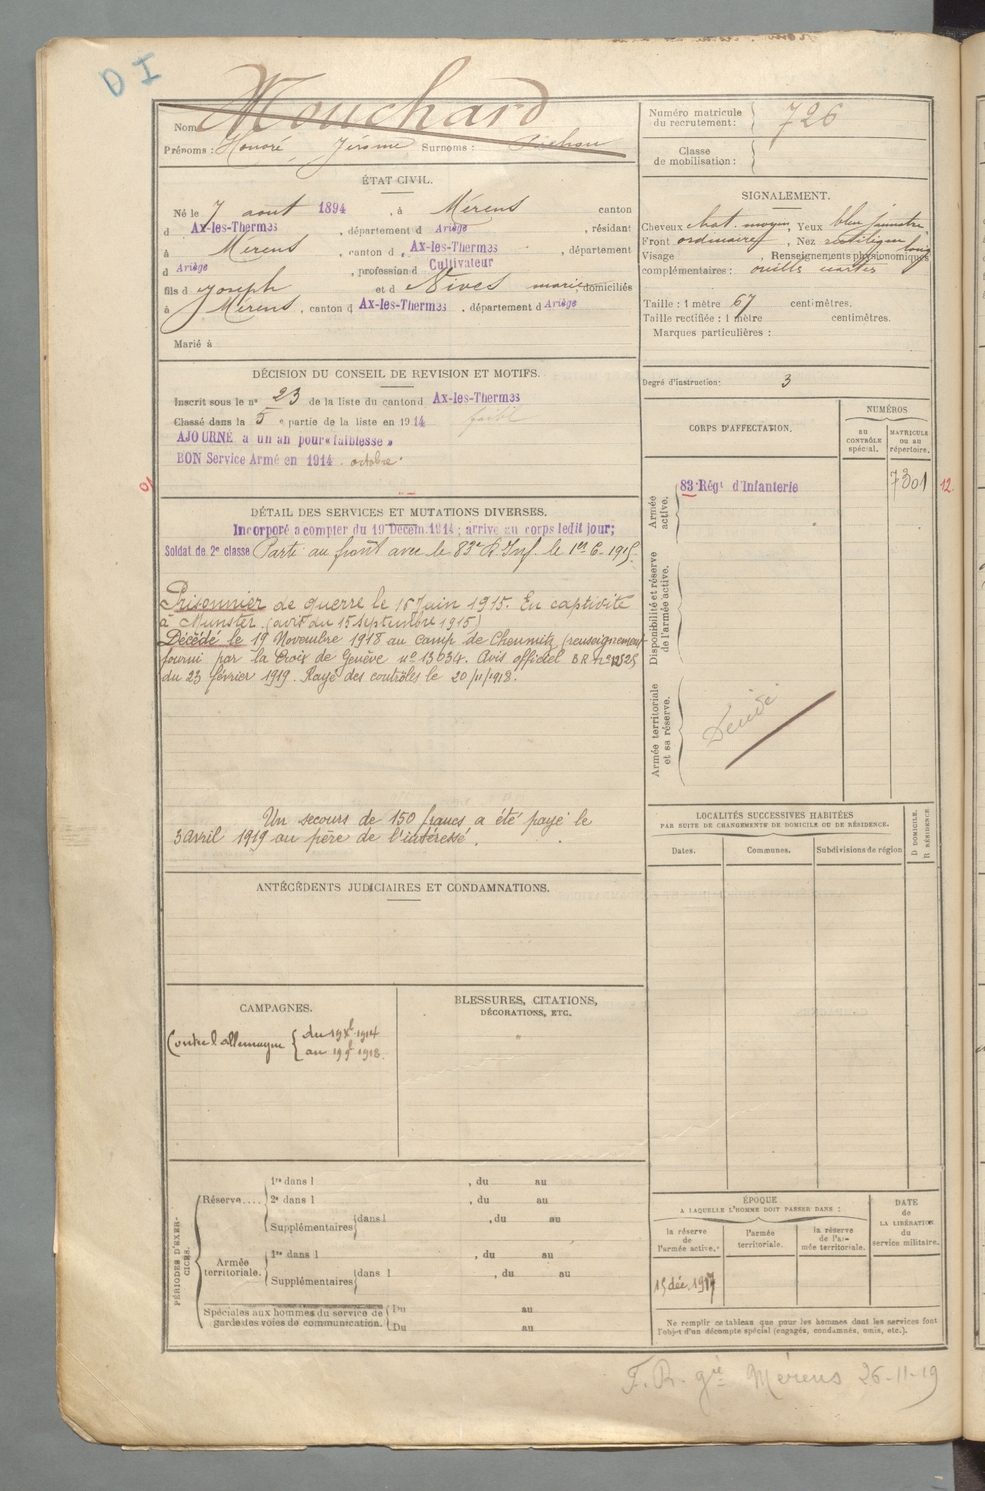 D I
Nom Mouchard
Prénoms : Honoré Jérôme Surnoms :
Numéro matricule du recrutement : 726
Classe de mobilisation :
ÉTAT CIVIL.
Né le 7 août 1894, à Mérens canton
d Ax-les-Thermes, département d Ariège, résidant
à Mérens, canton d Ax-les-Thermes, département
d Ariège, profession d Cultivateur
fils d Joseph et d Nives marie domiciliés
à Mérens, canton d Ax-les-Thermes, département d Ariège
Marié à
SIGNALEMENT.
Cheveux chat. moyen, Yeux bleu
Front ordinaire, Nez rectiligne
Visage long, Renseignements physionomiques
complémentaires : oreilles
Taille : 1 mètre 67 centimètres.
Taille rectifiée : 1 mètre centimètres.
Marques particulières :
Degré d'instruction : 3
DÉCISION DU CONSEIL DE REVISION ET MOTIFS.
Inscrit sous le n° 23 de la liste du canton d Ax-les-Thermes
Classé dans la 5e partie de la liste en 1914 faibl
AJOURNÉ à un an pour « faiblesse »
BON Service Armé en 1914. octobre.
CORPS D'AFFECTATION.
NUMÉROS
AU CONTRÔLE spécial.
MATRICULE ou au répertoire.
Armée active.
83e Régt d'Infanterie
7301
12.
Disponibilité et réserve de l'armée active.
Armée territoriale et sa réserve.
DÉTAIL DES SERVICES ET MUTATIONS DIVERSES.
Incorporé à compter du 19 Décem. 1914 ; arrivé au corps ledit jour ;
Soldat de 2e classe Parti au front avec le 83e R. Inf. le 1er-6-1915.
Prisonnier de guerre le 16 Juin 1915. En captivité
à Munster. (avis du 15 septembre 1915)
Décédé le 19 Novembre 1918 au camp de Chemnitz (renseignement
fourni par la Croix de Genève n° 13034. Avis officiel B.R. n°
du 23 février 1919. Rayé des contrôles le 20/11/1918.
Un secours de 150 francs a été payé le
3 avril 1919 au père de l'intéressé.
LOCALITÉS SUCCESSIVES HABITÉES
PAR SUITE DE CHANGEMENTS DE DOMICILE OU DE RÉSIDENCE.
D DOMICILE. R RÉSIDENCE
Dates. Communes. Subdivisions de région
ANTÉCÉDENTS JUDICIAIRES ET CONDAMNATIONS.
CAMPAGNES.
Contre l'allemagne { du 19 Xbre 1914
au 19 9bre 1918.
BLESSURES, CITATIONS,
DÉCORATIONS, ETC.
"
PÉRIODES D'EXERCICES.
Réserve....
1re dans l , du au
2e dans l , du au
Supplémentaires dans l , du au
Armée territoriale.
1re dans l , du au
Supplémentaires dans l , du au
Spéciales aux hommes du service de garde des voies de communication.
Du au
Du au
ÉPOQUE
A LAQUELLE L'HOMME DOIT PASSER DANS :
la réserve de l'armée active.
l'armée territoriale.
la réserve de l'armée territoriale.
DATE de LA LIBÉRATION du service militaire.
15 déc. 1917
Ne remplir ce tableau que pour les hommes dont les services font
l'objet d'un décompte spécial (engagés, condamnés, omis, etc.).
Mérens 26-11-19